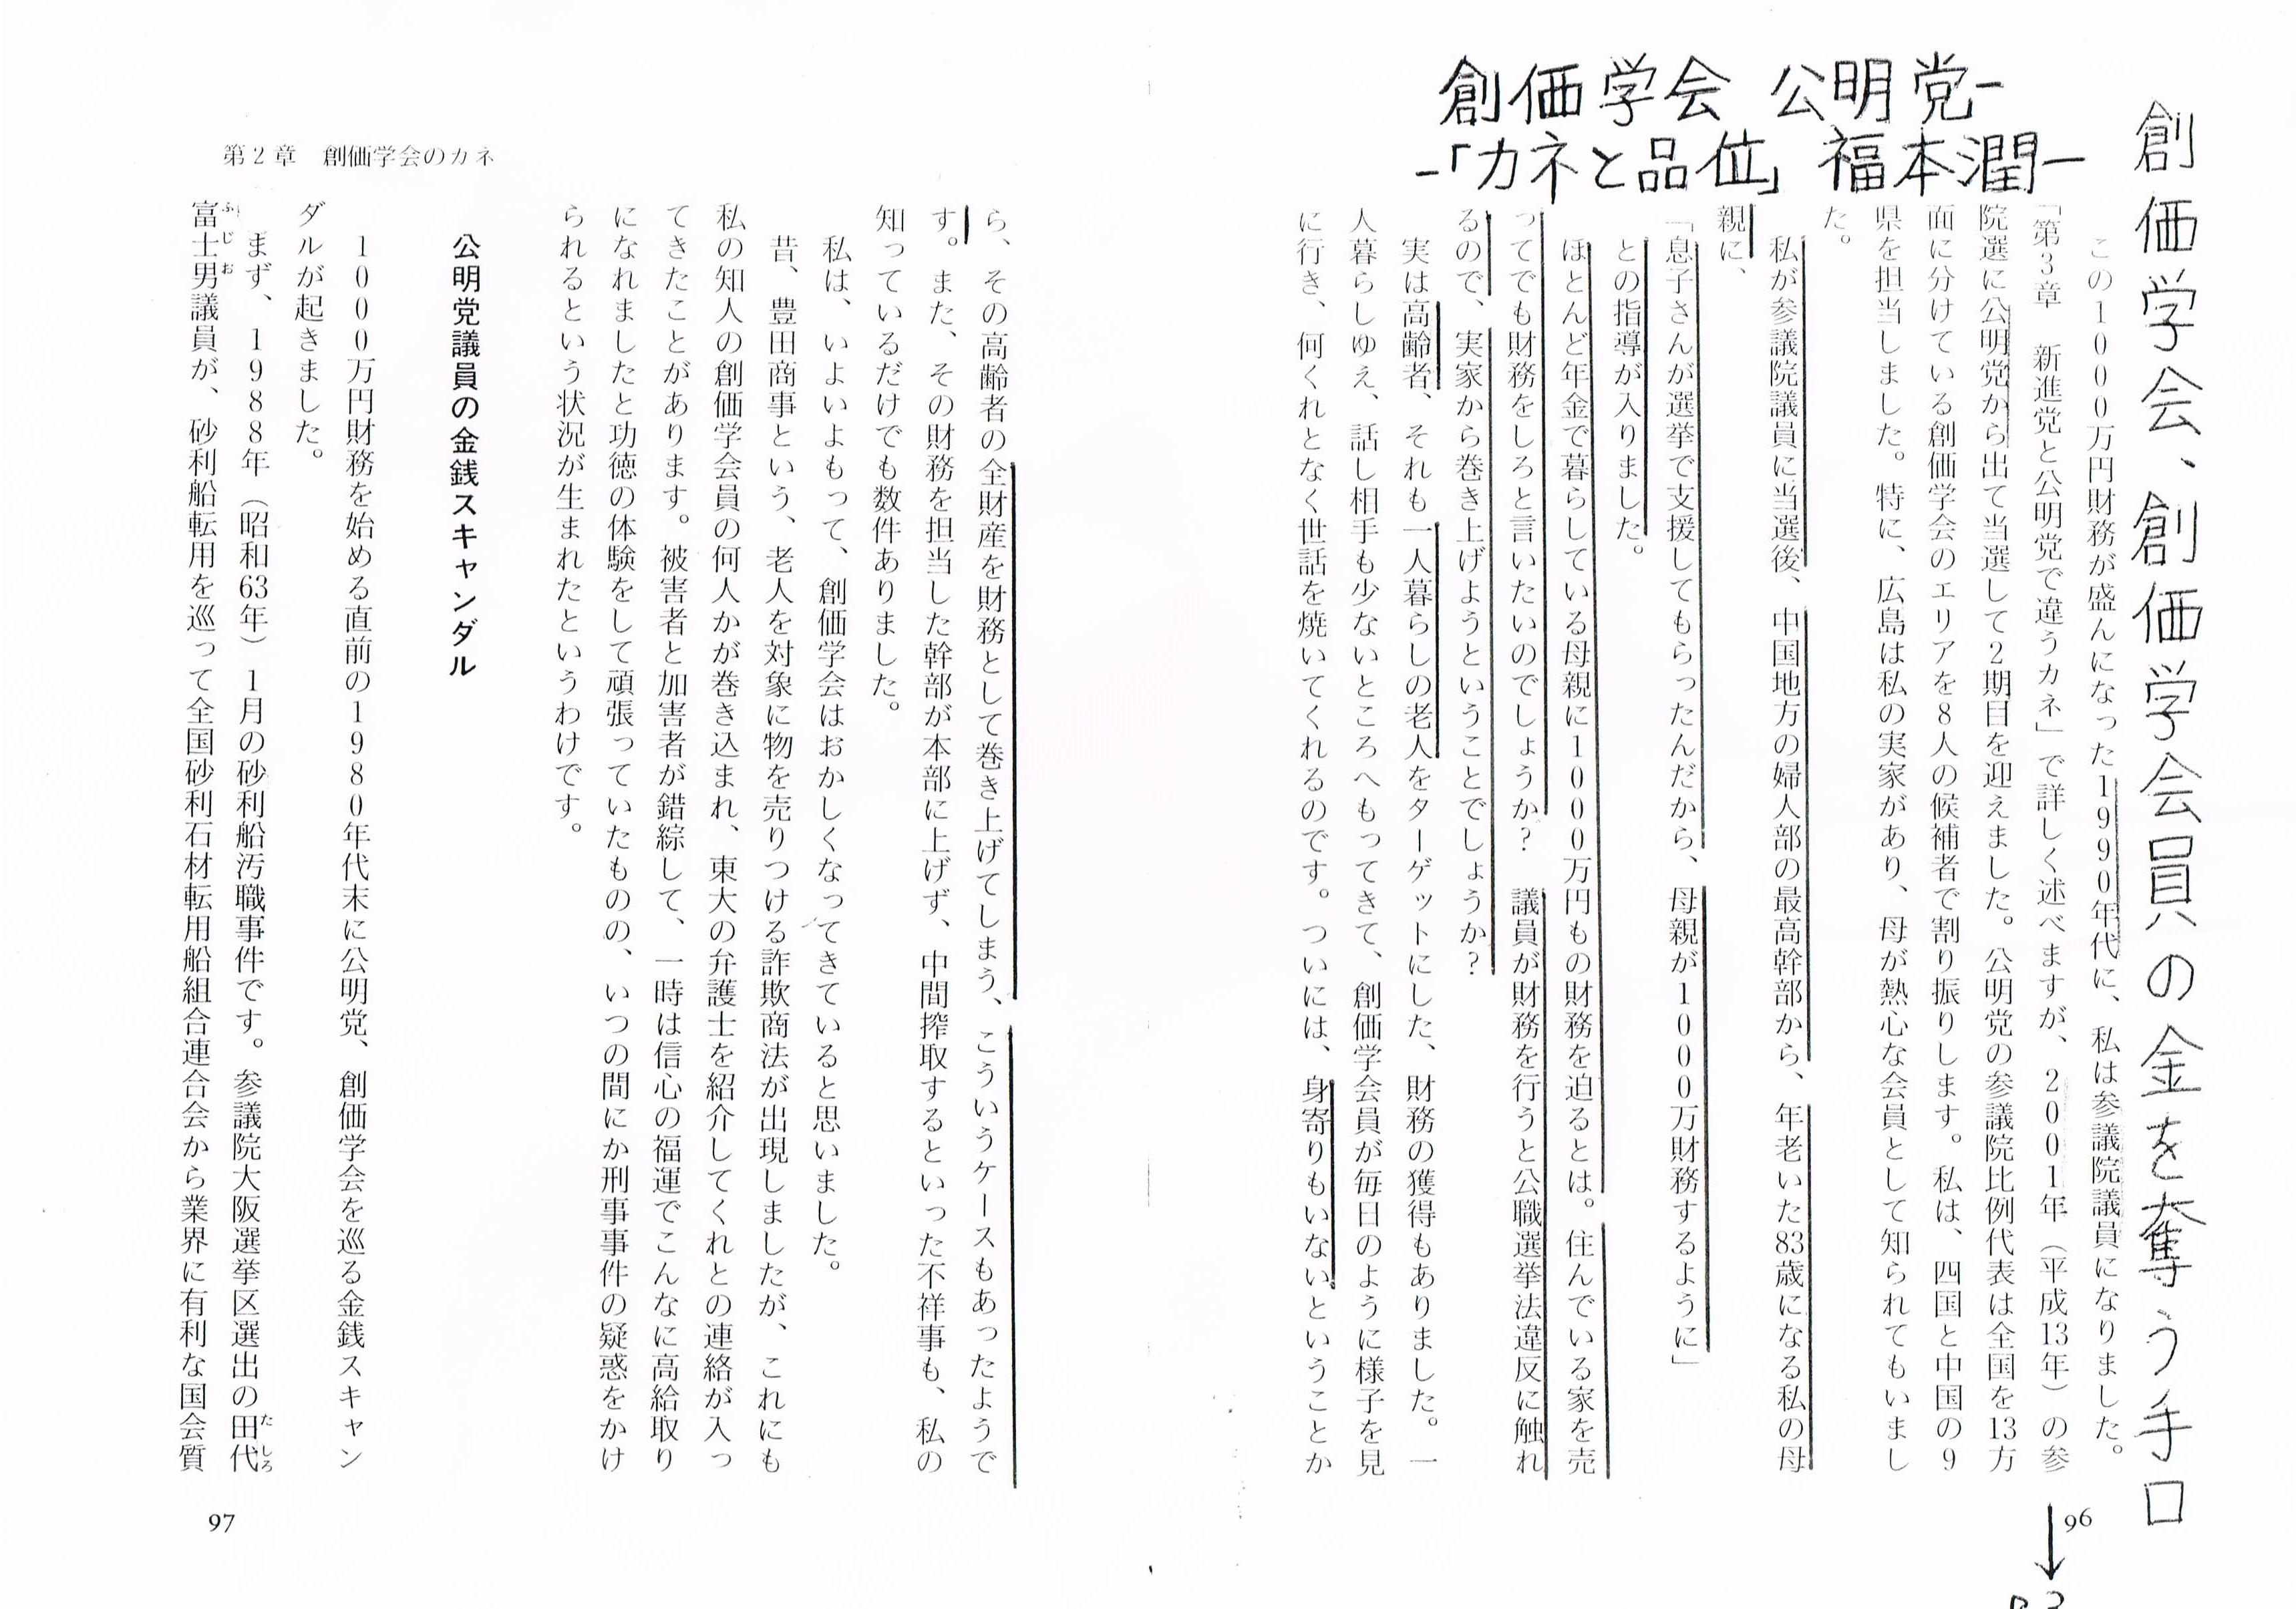 創価学会、創価学会員の金を奪う手口
創価学会 公明党ー
ー「カネと品位」 福本潤一
この1000万円財務が盛んになった1990年代に、私は参議院議員になりました。
「第3章　新進党と公明党で違うカネ」で詳しく述べますが、2001年（平成13年）の参
院選に公明党から出て当選して2期目を迎えました。公明党の参議院比例代表は全国を13方
面に分けている創価学会のエリアを8人の候補者で割り振りします。私は、四国と中国の9
県を担当しました。特に、広島は私の実家があり、母が熱心な会員として知られてもいまし
た。
私が参議院議員に当選後、中国地方の婦人部の最高幹部から、年老いた83歳になる私の母
親に、
「息子さんが選挙で支援してもらったんだから、母親が1000万財務するように」
との指導が入りました。
ほとんど年金で暮らしている母親に1000万円もの財務を迫るとは。住んでいる家を売
ってでも財務をしろと言いたいのでしょうか？　議員が財務を行うと公職選挙法違反に触れ
るので、実家から巻き上げようということでしょうか？
実は高齢者、それも一人暮らしの老人をターゲットにした、財務の獲得もありました。一
人暮らしゆえ、話し相手も少ないところへもってきて、創価学会員が毎日のように様子を見
に行き、何くれとなく世話を焼いてくれるのです。ついには、身寄りもいないということか
96
ら、その高齢者の全財産を財務として巻き上げてしまう、こういうケースもあったようで
す。また、その財務を担当した幹部が本部に上げず、中間搾取するといった不祥事も、私の
知っているだけでも数件ありました。
私は、いよいよもって、創価学会はおかしくなってきていると思いました。
昔、豊田商事という、老人を対象に物を売りつける詐欺商法が出現しましたが、これにも
私の知人の創価学会員の何人かが巻き込まれ、東大の弁護士を紹介してくれとの連絡が入っ
てきたことがあります。被害者と加害者が錯綜して、一時は信心の福運でこんなに高給取り
になれましたと功徳の体験をして頑張っていたものの、いつの間にか刑事事件の疑惑をかけ
られるという状況が生まれたというわけです。
公明党議員の金銭スキャンダル
1000万円財務を始める直前の1980年代末に公明党、創価学会を巡る金銭スキャン
ダルが起きました。
まず、1988年（昭和63年）1月の砂利船汚職事件です。参議院大阪選挙区選出の田代
たしろ
富士男議員が、砂利船転用を巡って全国砂利石材転用船組合連合会から業界に有利な国会質
ふじお
第2章　創価学会のカネ
97